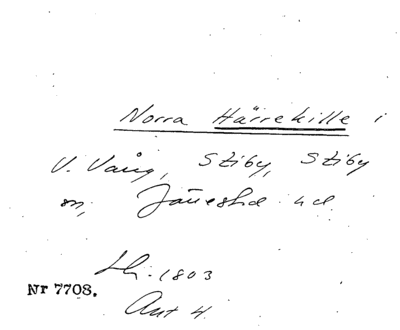 Norra Härrekille i
V. Vång, Stiby, Stiby
sn, Järrestad hd.
Lh. 1803
Nr 7708.
Avt 4